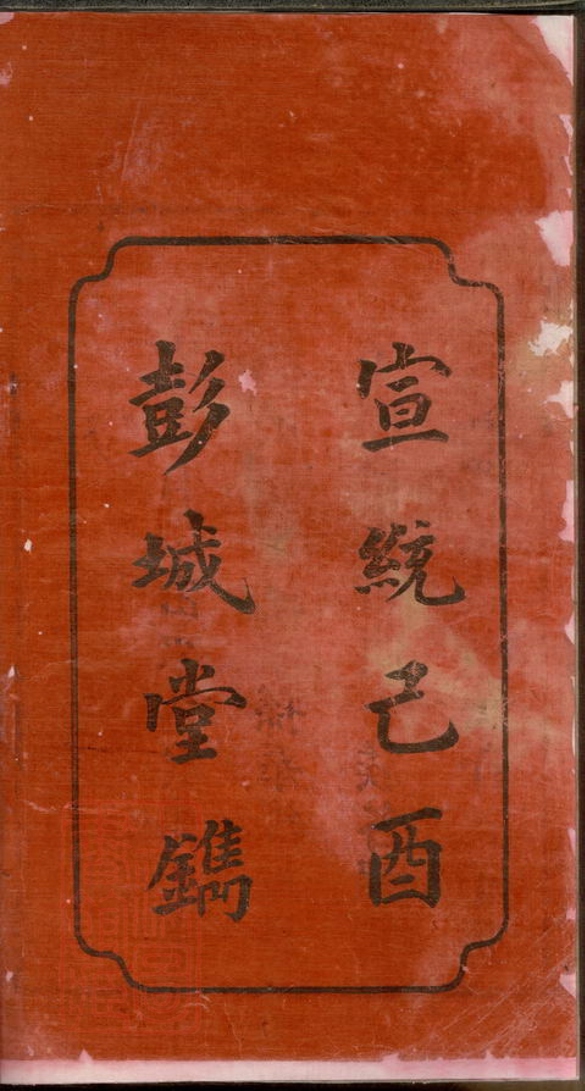 宣統己酉
彭城堂鐫